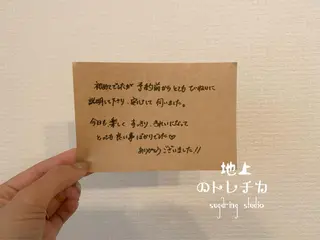 初めてでしたが 予約前からとても ていねいに
説明して下さり、安心して伺いました。
今日も楽しく すっきり、きれいになって
とっても良い事ばかりでした♡
ありがとうございました!!
地上
のトレチカ
sugd-ing studio